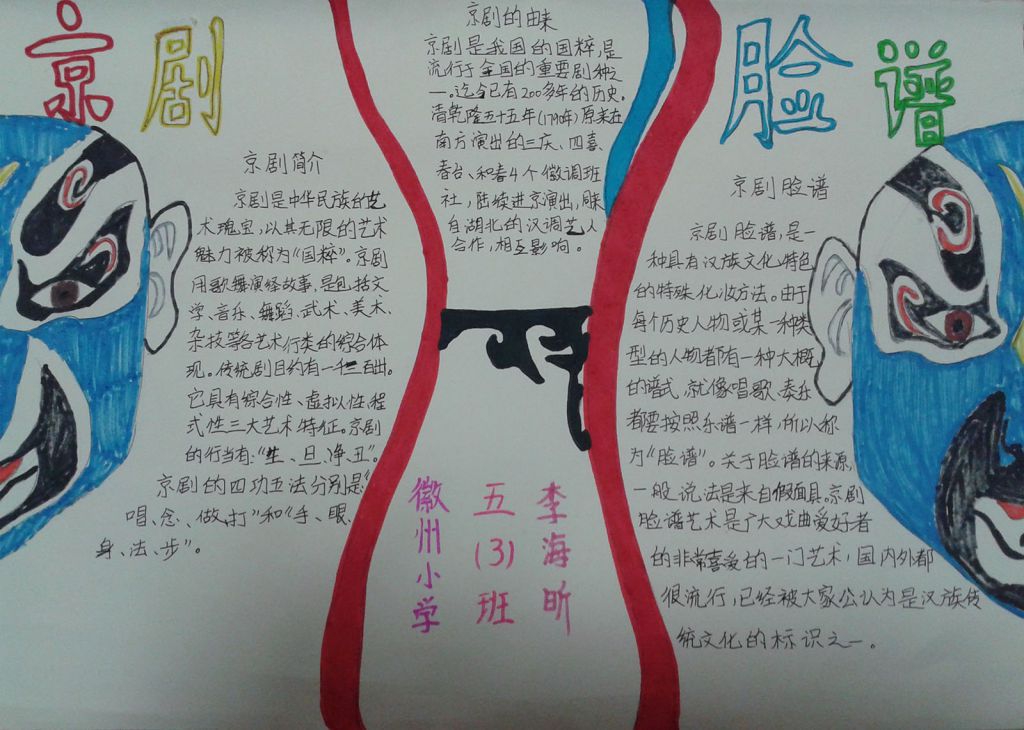 京剧
脸谱
京剧简介
京剧是中华民族的艺
术瑰宝,以其无限的艺术
魅力被称为“国粹”。京剧
用歌舞演绎故事,是包括文
学、音乐、舞蹈、武术、美术、
杂技等各艺术行类的综合体
现。传统剧目约有一千三百出。
它具有综合性、虚拟性,程
式性三大艺术特征。京剧
的行当有:“生、旦、净、丑”。
京剧的四功五法分别是“
唱、念、做、打”和“手、眼、
身、法、步”。
京剧的由来
京剧是我国的国粹,是
流行于全国的重要剧种之
一。迄今已有200多年的历史。
清乾隆五十五年(1790年)原来在
南方演出的三庆、四喜、
春台、和春4个徽调班
社,陆续进京演出,同来
自湖北的汉调艺人
合作,相互影响。
徽州小学
五(3)班
李海昕
京剧脸谱
京剧脸谱,是一
种具有汉族文化特色
的特殊化妆方法。由于
每个历史人物或某一种类
型的人物都有一种大概
的谱式,就像唱歌、奏乐
都要按照乐谱一样,所以称
为“脸谱”。关于脸谱的来源,
一般说法是来自假面具。京剧
脸谱艺术是广大戏曲爱好者
的非常喜爱的一门艺术,国内外都
很流行,已经被大家公认为是汉族传
统文化的标识之一。